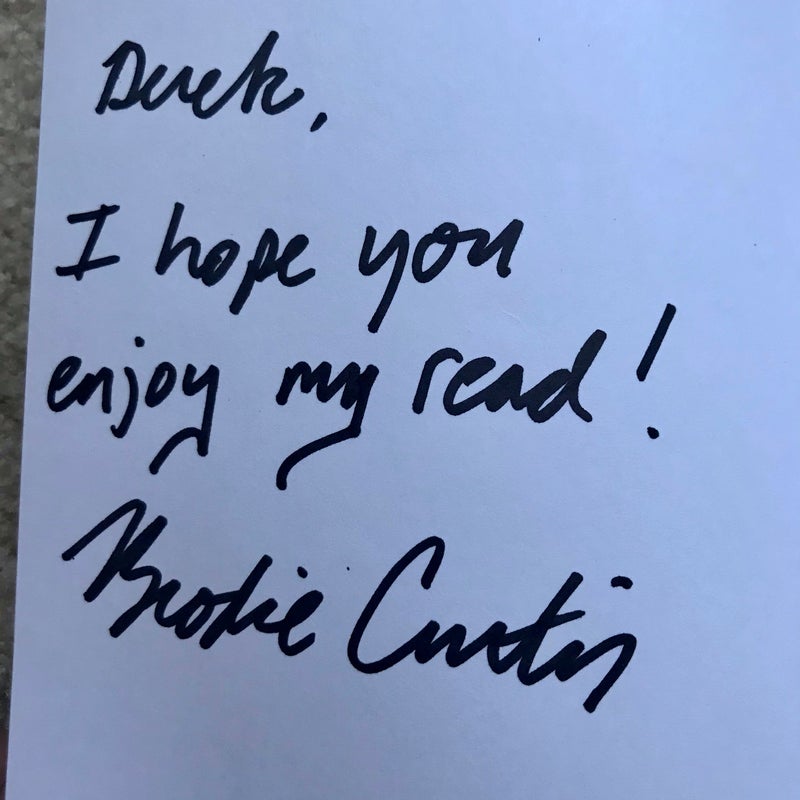 Derek,
I hope you
enjoy my read!
Brodie Curtis